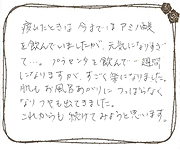 疲れたときは 今までは アミノ酸
を飲んでいましたが、元気になりすぎ
て…。プラセンタを飲んで一週間
になりますが、すごく楽になりました。
肌もお風呂あがりに つっぱらなく
なりツヤも出てきました。
これからも 続けてみようと思います。